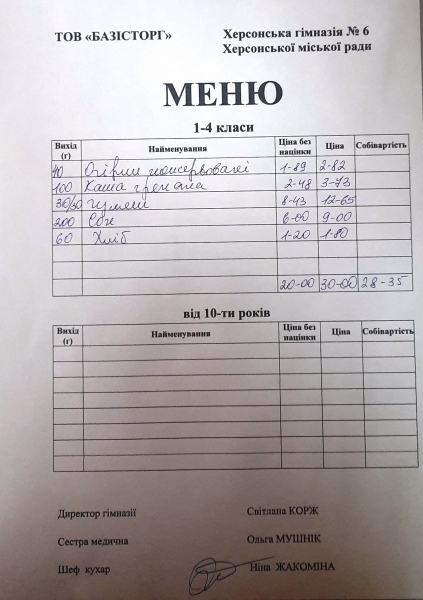 ТОВ «БАЗІСТОРГ» Херсонська гімназія № 6
Херсонської міської ради
МЕНЮ
1-4 класи
Вихід (г) Найменування Ціна без націнки Ціна Собівартість
40 Огірки консервовані 1-89 2-82
100 Каша гречана 2-48 3-73
30/30 Гуляш 8-43 12-65
200 Сік 6-00 9-00
60 Хліб 1-20 1-80
20-00 30-00 28-35
від 10-ти років
Вихід (г) Найменування Ціна без націнки Ціна Собівартість
Директор гімназії Світлана КОРЖ
Сестра медична Ольга МУШНІК
Шеф кухар Ніна ЖАКОМІНА